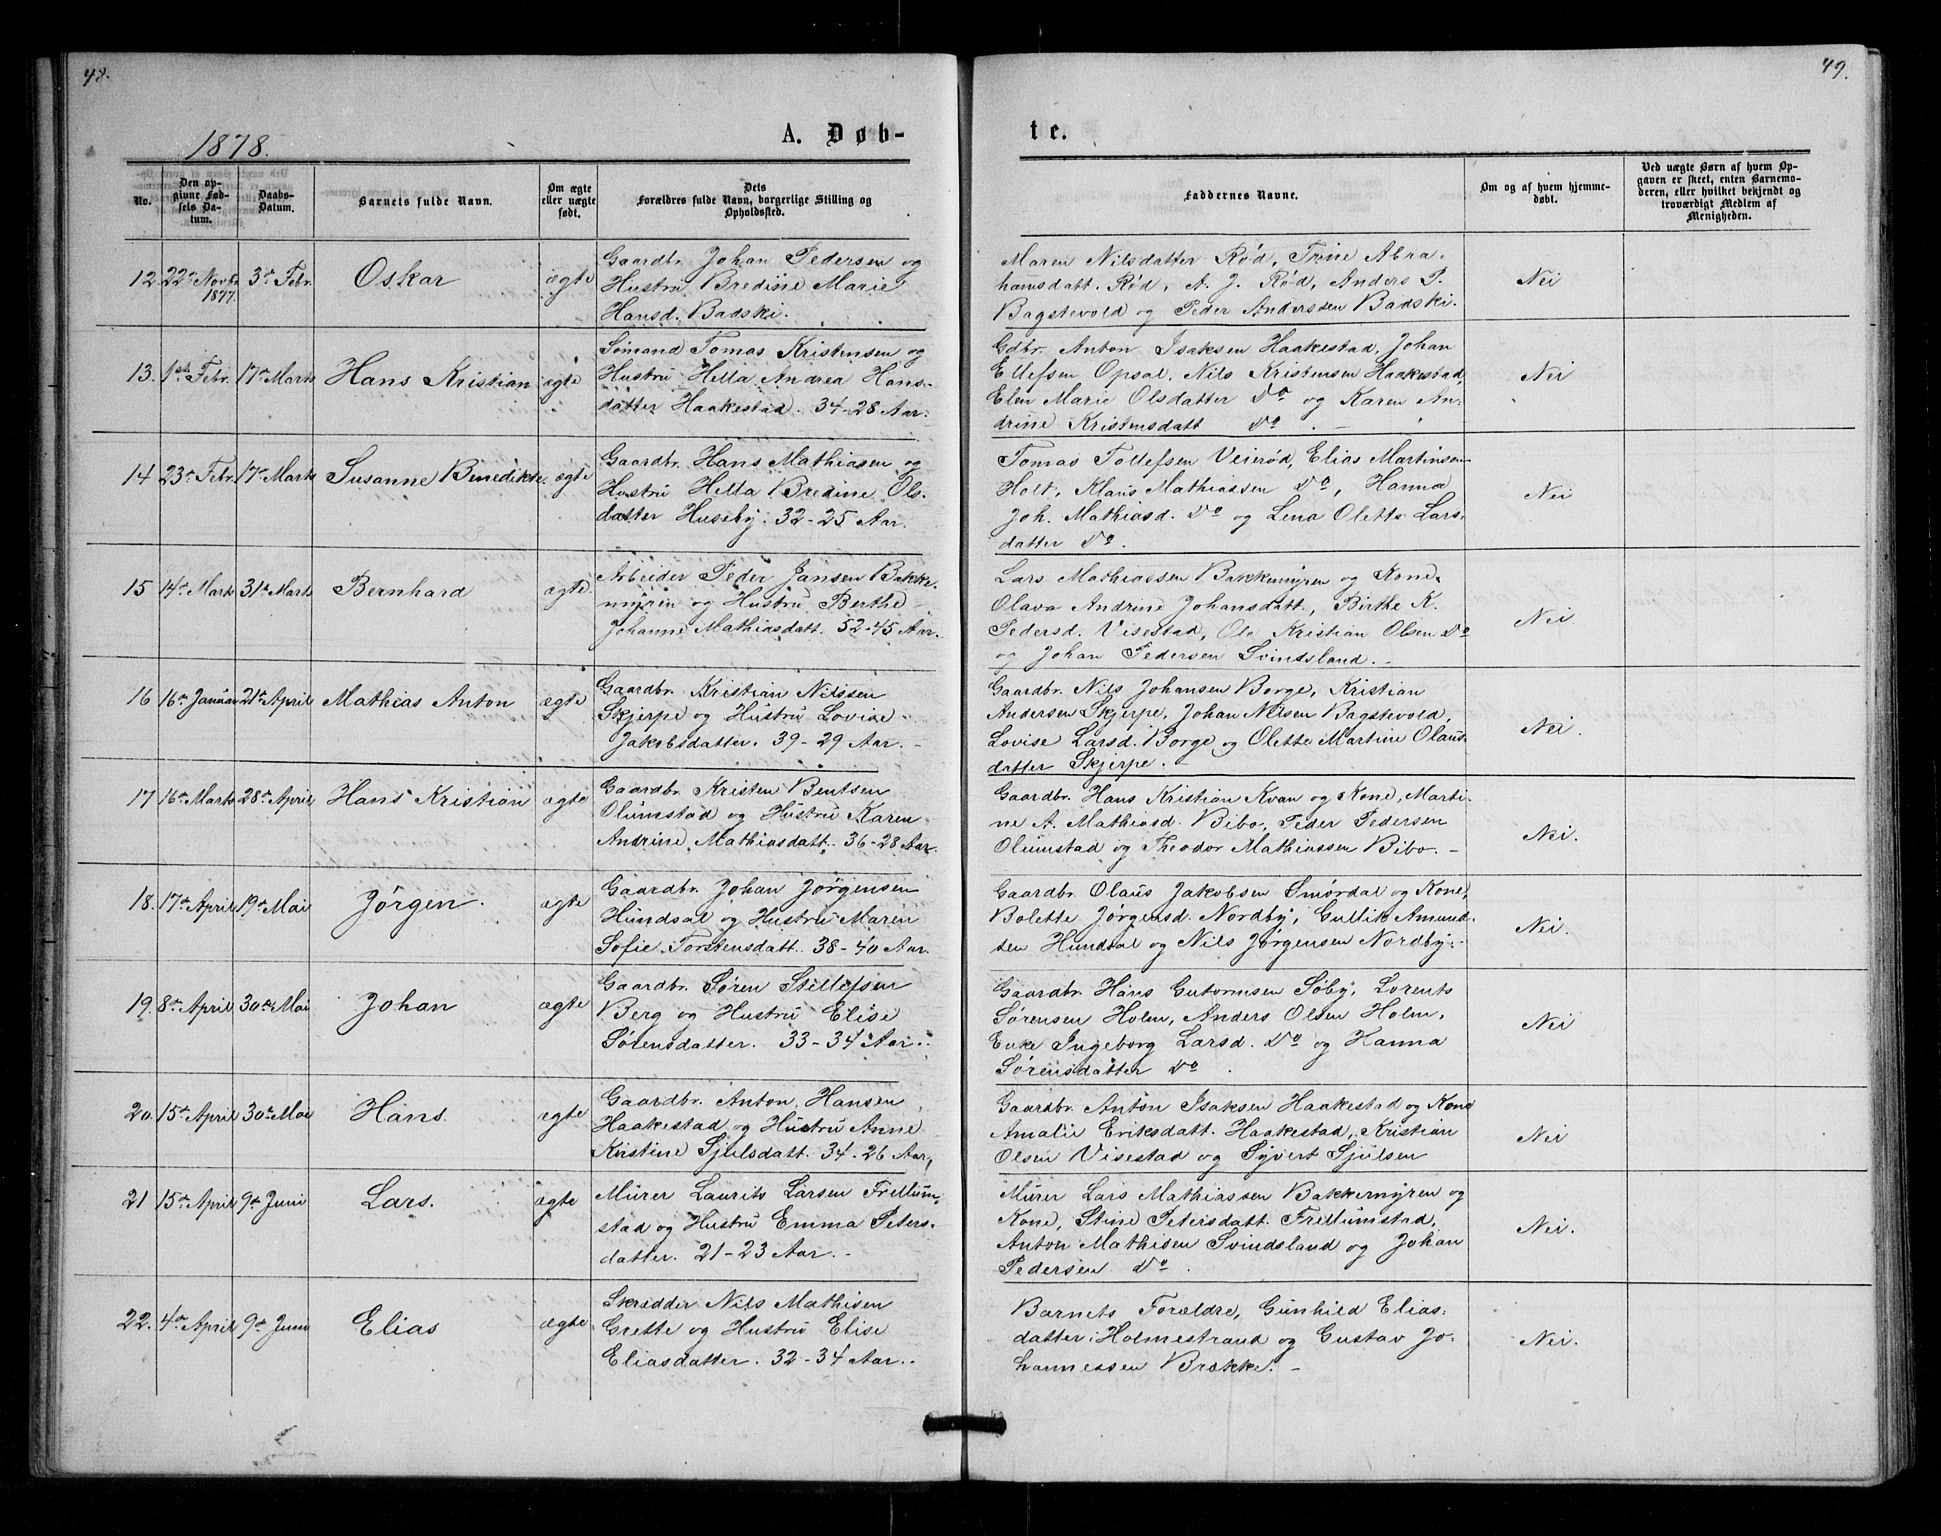 48.
49.
1878.
A. Døb-
te.
No.
Den op-
givne Fød-
sels Da-
tum.
Daabs-
Datum.
Barnets fulde Navn.
Om ægte
eller uægte
født.
Dets
Forældres fulde Navn, borgerlige Stilling og
Opholdssted.
Faddernes Navne.
Om og af hvem hjemme-
døbt.
Ved uægte Børn af hvem Op-
gaven er skeet, enten Barnemo-
deren, eller hvilket bekjendt og
troværdigt Medlem af
Menigheden.
12. 22de Novbr. 1877. 3de Febr. Oskar ægte
Gaardbr. Johan Pedersen og
Hustru Bredine Marie
Hansd. Badski.
Maren Nilsdatter Rød, Trine Abra-
hamsdatt. Rød, A. J. Rød, Anders P.
Bagstevold og Peder Anderssen Badski.
Nei
13. 1ste Febr. 17de Marts Hans Kristian ægte
Sømand Tomas Kristensen og
Hustru Hella Andrea Hans-
datter Haakestad. 34-28 Aar.
Gdbr. Anton Isaksen Haakestad, Johan
Ellefsen Opsal, Nils Kristensen Haakestad,
Elen Marie Olsdatter Do og Karen An-
drine Kristensdatt Do. -
Nei
14 23de Febr. 17de Marts Susanne Benedikte. ægte
Gaardbr. Hans Mathiasen og
Hustru Hella Bredine Ols-
datter Huseby. 32-25 Aar.
Tomas Tollefsen Veierød, Elias Martinsen
Holt, Klaus Mathiassen Do, Hanna
Joh. Mathiasd. Do og Lena Olette Lars-
datter Do.
Nei
15 14de Marts 31te Marts Bernhard ægte
Arbeider Peder Jansen Bakke-
myren og Hustru Berthe
Johanne Mathiasdatt. 52-45 Aar.
Lars Mathiassen Bakkemyren og Kone
Olava Andrine Johansdatt., Birthe K.
Pedersd. Visestad, Ole Kristian Olsen Do
og Johan Pedersen Svindsland. -
Nei.
16 16de Januar 21de April Mathias Anton ægte
Gaardbr. Kristian Nilssen
Skjerpe og Hustru Lovise
Jakobsdatter. 39-29 Aar. -
Gaardbr. Nils Johansen Borge, Kristian
Andersen Skjerpe, Johan Nilsen Bagstevold,
Lovise Larsd. Borge og Olette Martine Olaus-
datter Skjerpe. -
Nei.
17 16de Marts 28de April Hans Kristian ægte
Gaardbr. Kristen Bentsen
Olumstad og Hustru Karen
Andrine Mathiasdatt. 36-28 Aar.
Gaardbr. Hans Kristian Kvan og Kone, Marti-
ne A. Mathiasd. Bibo, Peder Pedersen
Olumstad og Theodor Mathiassen Bibo. -
Nei.
18. 17de April 19de Mai Jørgen. ægte
Gaardbr. Johan Jørgensen
Hundsal og Hustru Maren
Sofie Torstensdatt. 38-40 Aar.
Gaardbr. Olaus Jakobsen Smørdal og Kone,
Bolette Jørgensd. Nordby, Gullik Amund-
sen Hundsal og Nils Jørgensen Nordby. -
Nei.
19. 8de April 30de Mai Johan ægte
Gaardbr. Søren Stillefsen
Berg og Hustru Elise
Sørensdatter. 33-34 Aar.
Gaardbr. Hans Gutormsen Søby, Lorents
Sørensen Holm, Anders Olsen Holm,
Enke Ingeborg Larsd. Do og Hanna
Sørensdatter Do.
Nei
20. 15de April 30de Mai Hans. ægte
Gaardbr. Anton Hansen
Haakestad og Hustru Anne
Kirstine Sjulsdatt. 34-26 Aar,
Gaardbr. Anton Isaksen Haakestad og Kone
Amalie Eriksdatt. Haakestad, Kristian
Olsen Visestad og Syvert Sjulsen
Nei
21 15de April 9de Juni Lars. ægte
Murer Laurits Larsen Frellum-
stad og Hustru Emma Peters-
datter. 21-23 Aar. -
Murer Lars Mathiassen Bakkemyren og
Kone, Stine Petersdatt. Frellumstad,
Anton Mathisen Svindsland og Johan
Pedersen Do.
Nei.
22. 4de April 9de Juni Elias ægte
Skrædder Nils Mathisen
Grette og Hustru Elise
Eliasdatter. 32-34 Aar.
Barnets Forældre, Gunhild Elias-
datter Holmestrand og Gustav Jo-
hannessen Brække. -
Nei.